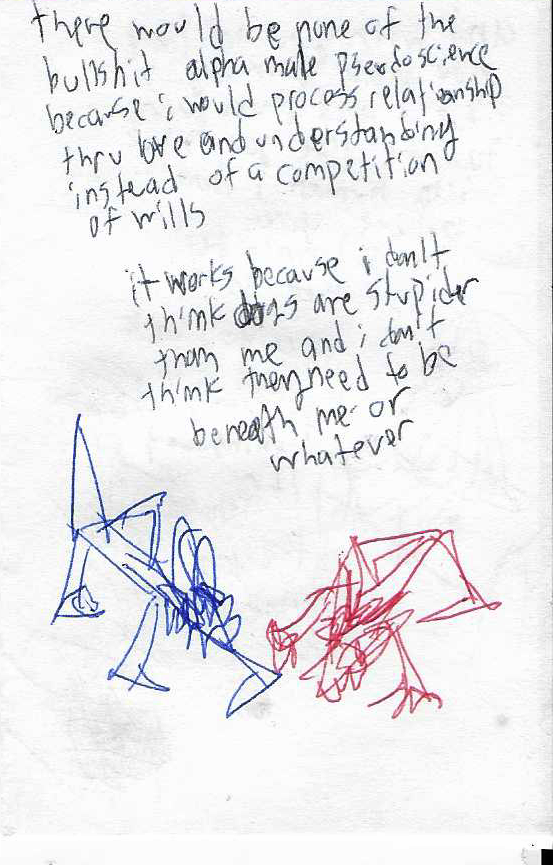 there would be none of the
bullshit alpha male pseudoscience
because i would process relationship
thru love and understanding
instead of a competition
of wills
it works because i don't
think dogs are stupider
than me and i don't
think they need to be
beneath me or
whatever